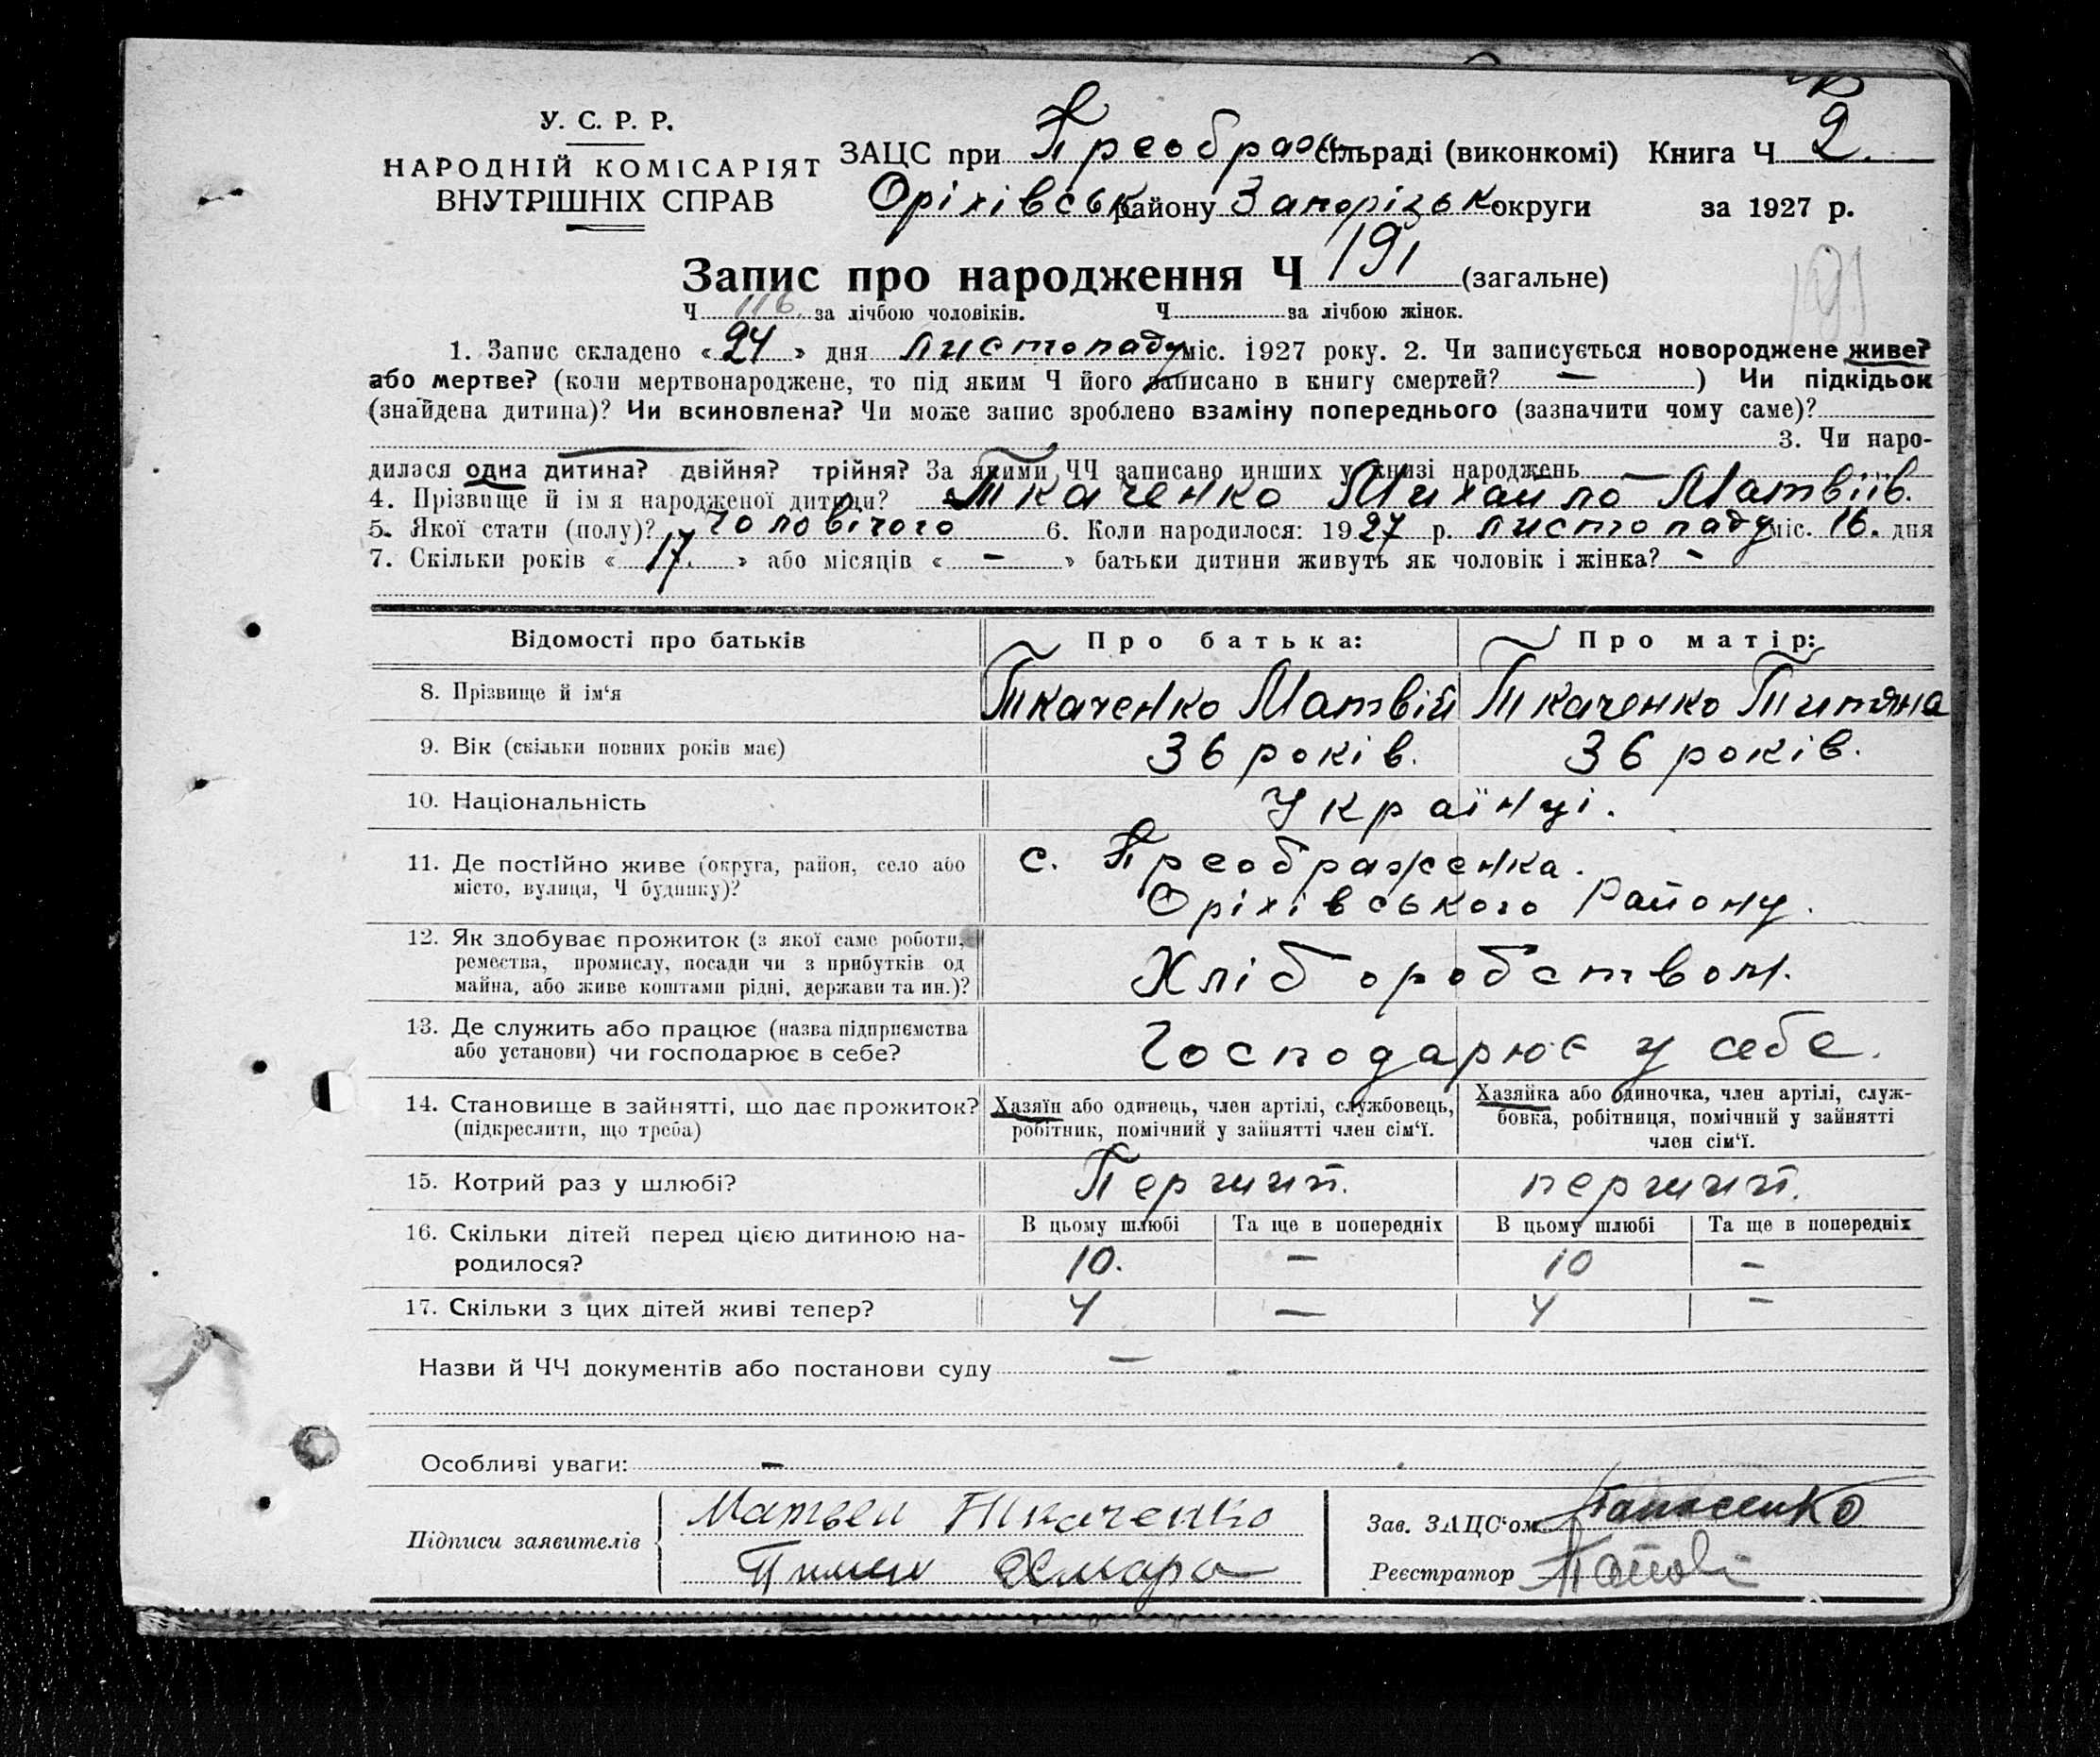 У. С. Р. Р.
НАРОДНІЙ КОМІСАРІЯТ
ВНУТРІШНІХ СПРАВ
ЗАЦС при Преображ сільраді (виконкомі) Книга Ч 2.
Оріхівськ району Запорізьк округи за 1927 р.
Запис про народження Ч 191 (загальне)
191
Ч 116 за лічбою чоловіків. Ч за лічбою жінок.
1. Запис складено « 24 » дня листопаду міс. 1927 року. 2. Чи записується новороджене живе?
або мертве? (коли мертвонароджене, то під яким Ч його записано в книгу смертей? — ) Чи підкідьок
(знайдена дитина)? Чи всиновлена? Чи може запис зроблено взаміну попереднього (зазначити чому саме)?
3. Чи наро-
дилася одна дитина? двійня? трійня? За якими ЧЧ записано инших у книзі народжень —
4. Прізвище й ім'я народженої дитини? Ткаченко Михайло Матвіїв.
5. Якої стати (полу)? чоловічого 6. Коли народилося: 1927 р. листопаду міс. 16. дня
7. Скільки років « 17. » або місяців « — » батьки дитини живуть як чоловік і жінка? -
Відомості про батьків Про батька: Про матір:
8. Прізвище й ім'я Ткаченко Матвій Ткаченко Титяна
9. Вік (скільки повних років має) 36 років. 36 років.
10. Національність Українці.
11. Де постійно живе (округа, район, село або
місто, вулиця, Ч будинку)?
с. Преображенка.
Оріхівського Району.
12. Як здобуває прожиток (з якої саме роботи,
ремества, промислу, посади чи з прибутків од
майна, або живе коштами рідні, держави та ин.)?
Хліборобством.
13. Де служить або працює (назва підприємства
або установи) чи господарює в себе?
Господарює у себе.
14. Становище в зайнятті, що дає прожиток?
(підкреслити, що треба)
Хазяїн або одинець, член артілі, службовець,
робітник, помічний у зайнятті член сім'ї.
Хазяйка або одиночка, член артілі, служ-
бовка, робітниця, помічний у зайнятті
член сім'ї.
15. Котрий раз у шлюбі? Перший. перший.
16. Скільки дітей перед цією дитиною на-
родилося?
В цьому шлюбі Та ще в попередніх В цьому шлюбі Та ще в попередніх
10. — 10 -
17. Скільки з цих дітей живі тепер? 4 — 4 -
Назви й ЧЧ документів або постанови суду —
Особливі уваги: -
Підписи заявителів
Матвей Ткаченко
Пимен Хмара
Зав. ЗАЦС'ом Панасенко
Реєстратор